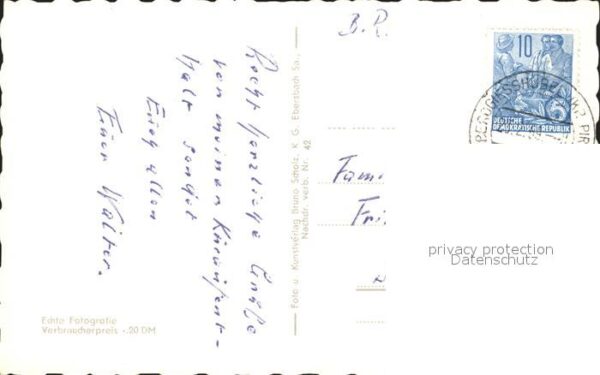 B. R.
Recht herzliche Grüße
von meinen Kuraufent-
halt sendet
Euch allen
Euer Walter.
Echte Fotografie
Verbraucherpreis -.20 DM
Foto u. Kunstverlag Bruno Scholz, K G Ebersbach Sa.,
Nachdr. verb. Nr. 42
10
DEUTSCHE
DEMOKRATISCHE REPUBLIK
BERGGIESSHÜBEL
Fam
Fri
privacy protection
Datenschutz